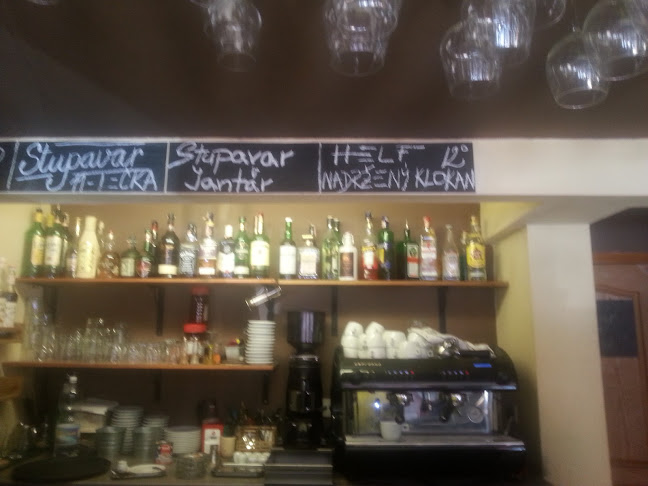 Stupavar
JA-TEČKA
Stupavar
Jantár
HELF 12°
NADRŽENÝ KLOKAN